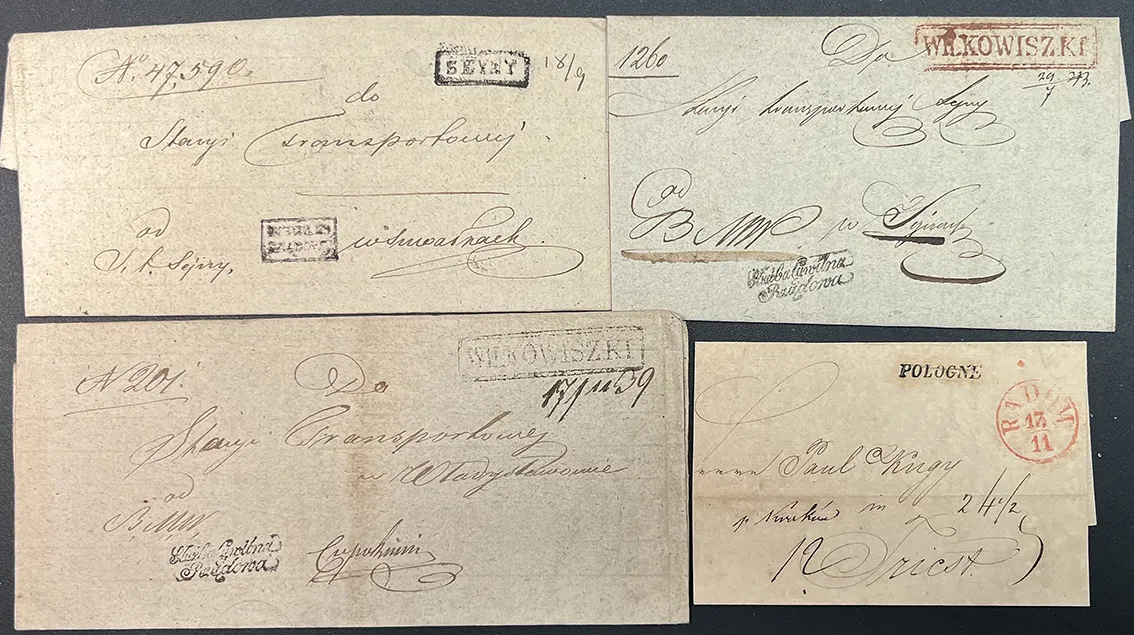 No 47,590.
SEYNY
18/9
do
Stacyi Transportowej
od
S. t. Sejny,
1260
Do
WIŁKOWISZKI
29/7 43.
Stacyi transportowej Sejny
od
BMW w
Służba Cywilna
Rządowa
N 201.
Do
WIŁKOWISZKI
17/11 39
Stacyi Transportowej
w Władysławowie
od
BMW.
Służba Cywilna
Rządowa
POLOGNE
RADOM
13
11
Paul
p. Kraków in 24 1/2
12 Triest.